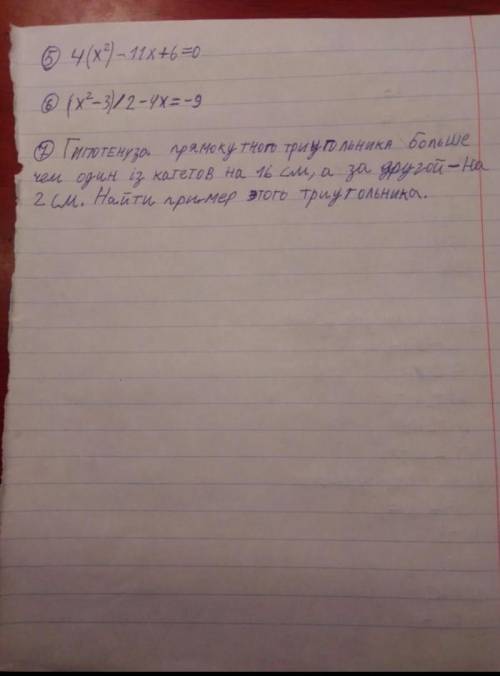 ⑤ 4(x²)-11x+6=0
⑥ (x²-3)/2-4x=-9
⑦ Гипотенуза прямокутного триугольника больше
чем один із катетов на 16 см, а за другой-на
2 см. Найтиример этого триугольника.